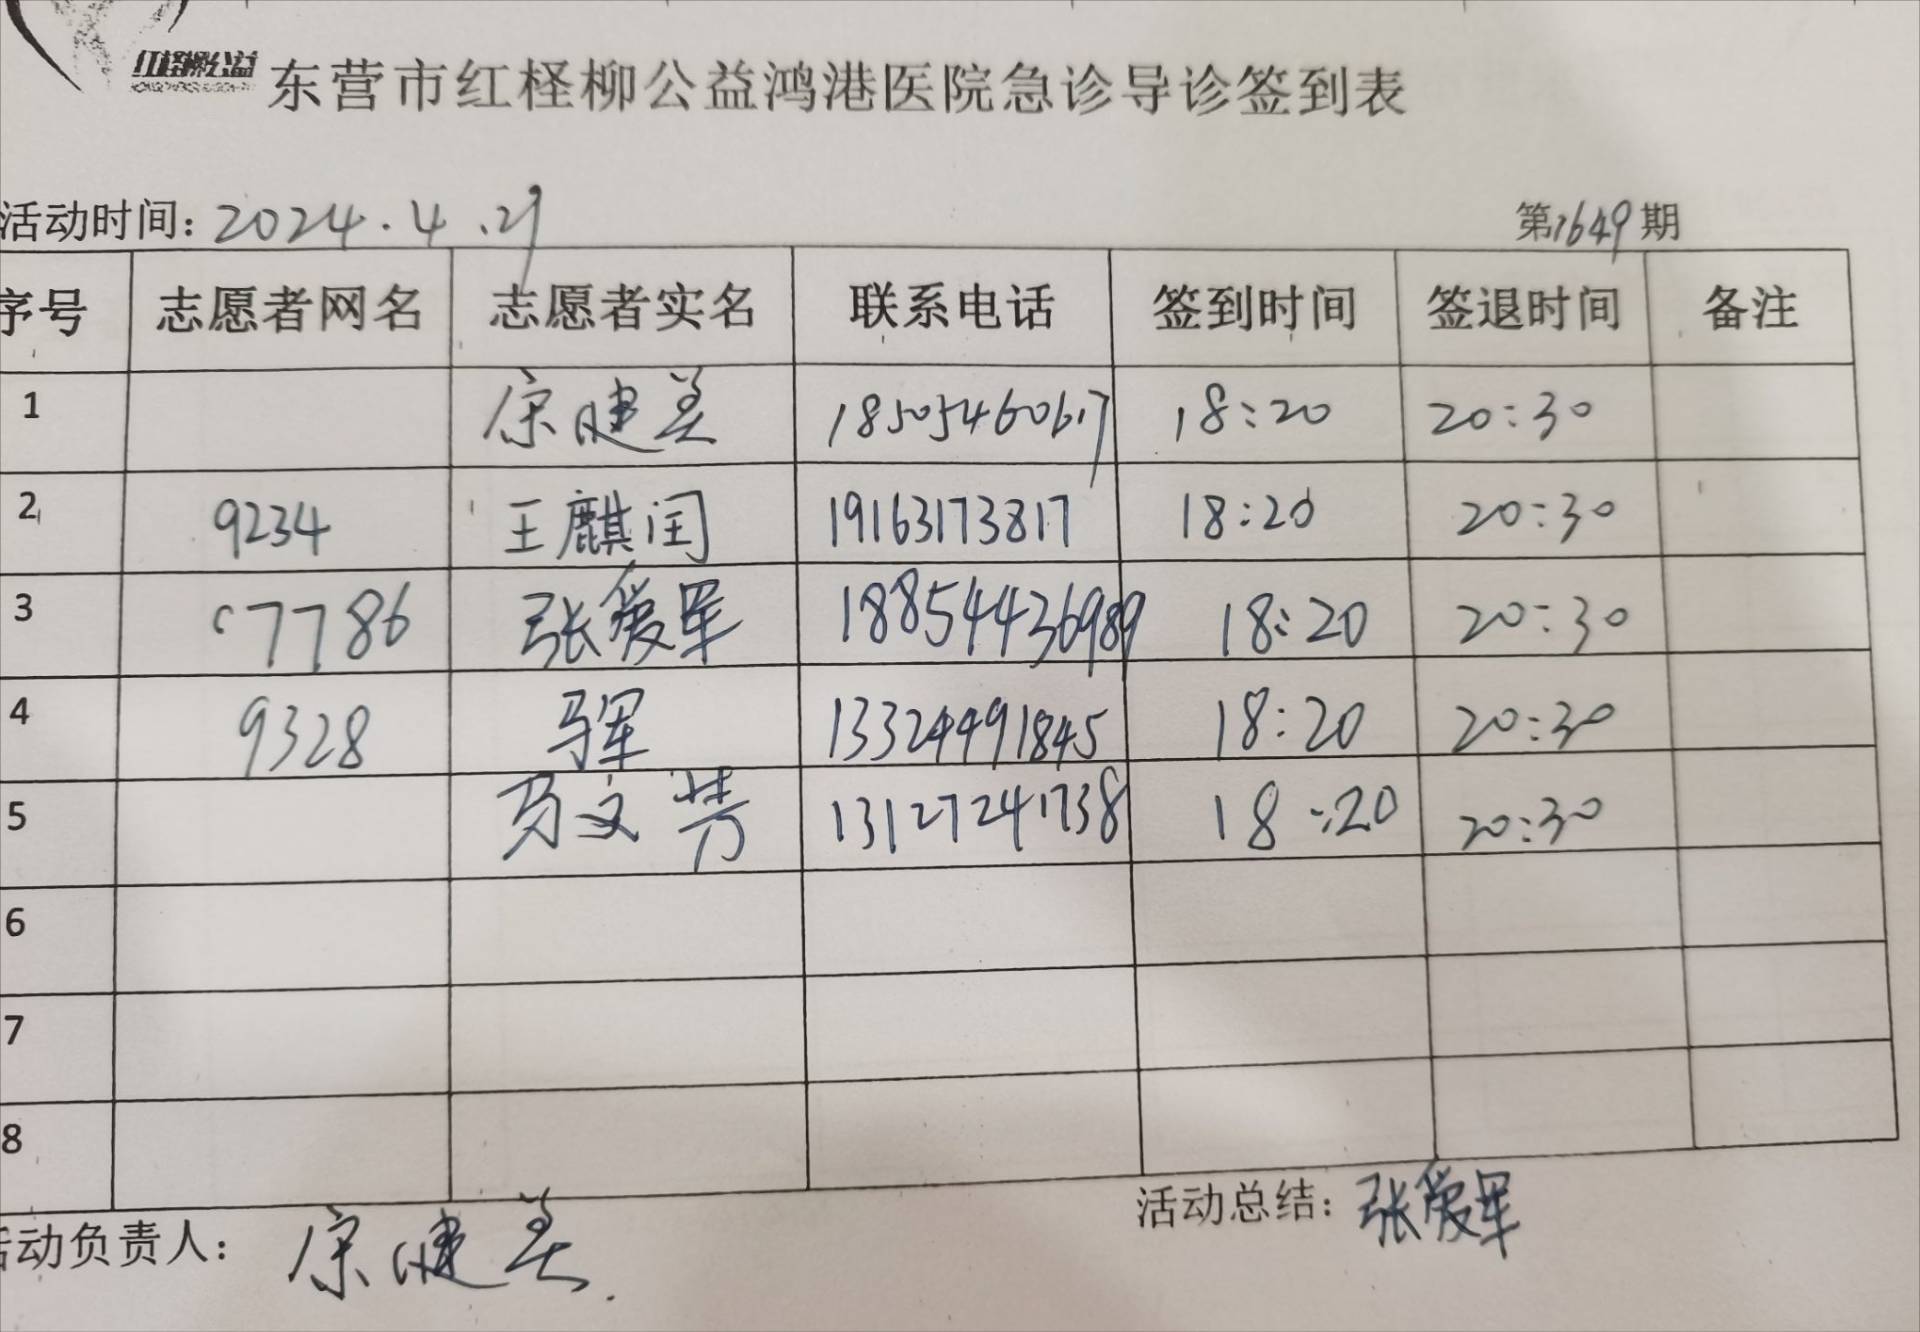 红柽柳公益
东营市红柽柳公益鸿港医院急诊导诊签到表
活动时间: 2024.4.29 第1649期
序号 志愿者网名 志愿者实名 联系电话 签到时间 签退时间 备注
1 18505460617 18:20 20:30
2 9234 王麒闰 19163173817 18:20 20:30
3 7786 张爱军 18854436989 18:20 20:30
4 9328 马军 13324491845 18:20 20:30
5 马文芳 13127241738 18:20 20:30
6
7
8
活动负责人: 活动总结: 张爱军